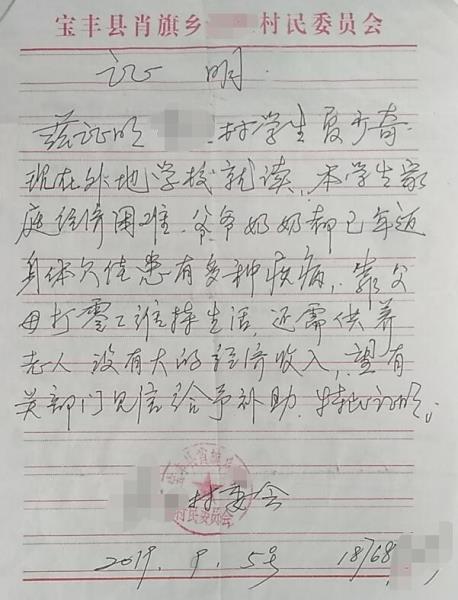 宝丰县肖旗乡 村民委员会
证 明
兹证明 村学生夏少奇
现在外地学校就读,本学生家
庭经济困难.爷爷奶奶都已年迈
身体欠佳患有多种疾病,靠父
母打零工维持生活,还需供养
老人 没有大的经济收入,望有
关部门见信给予补助.特此证明.
宝丰县肖旗乡
村委会
村民委员会
2019. 9. 5号 18768